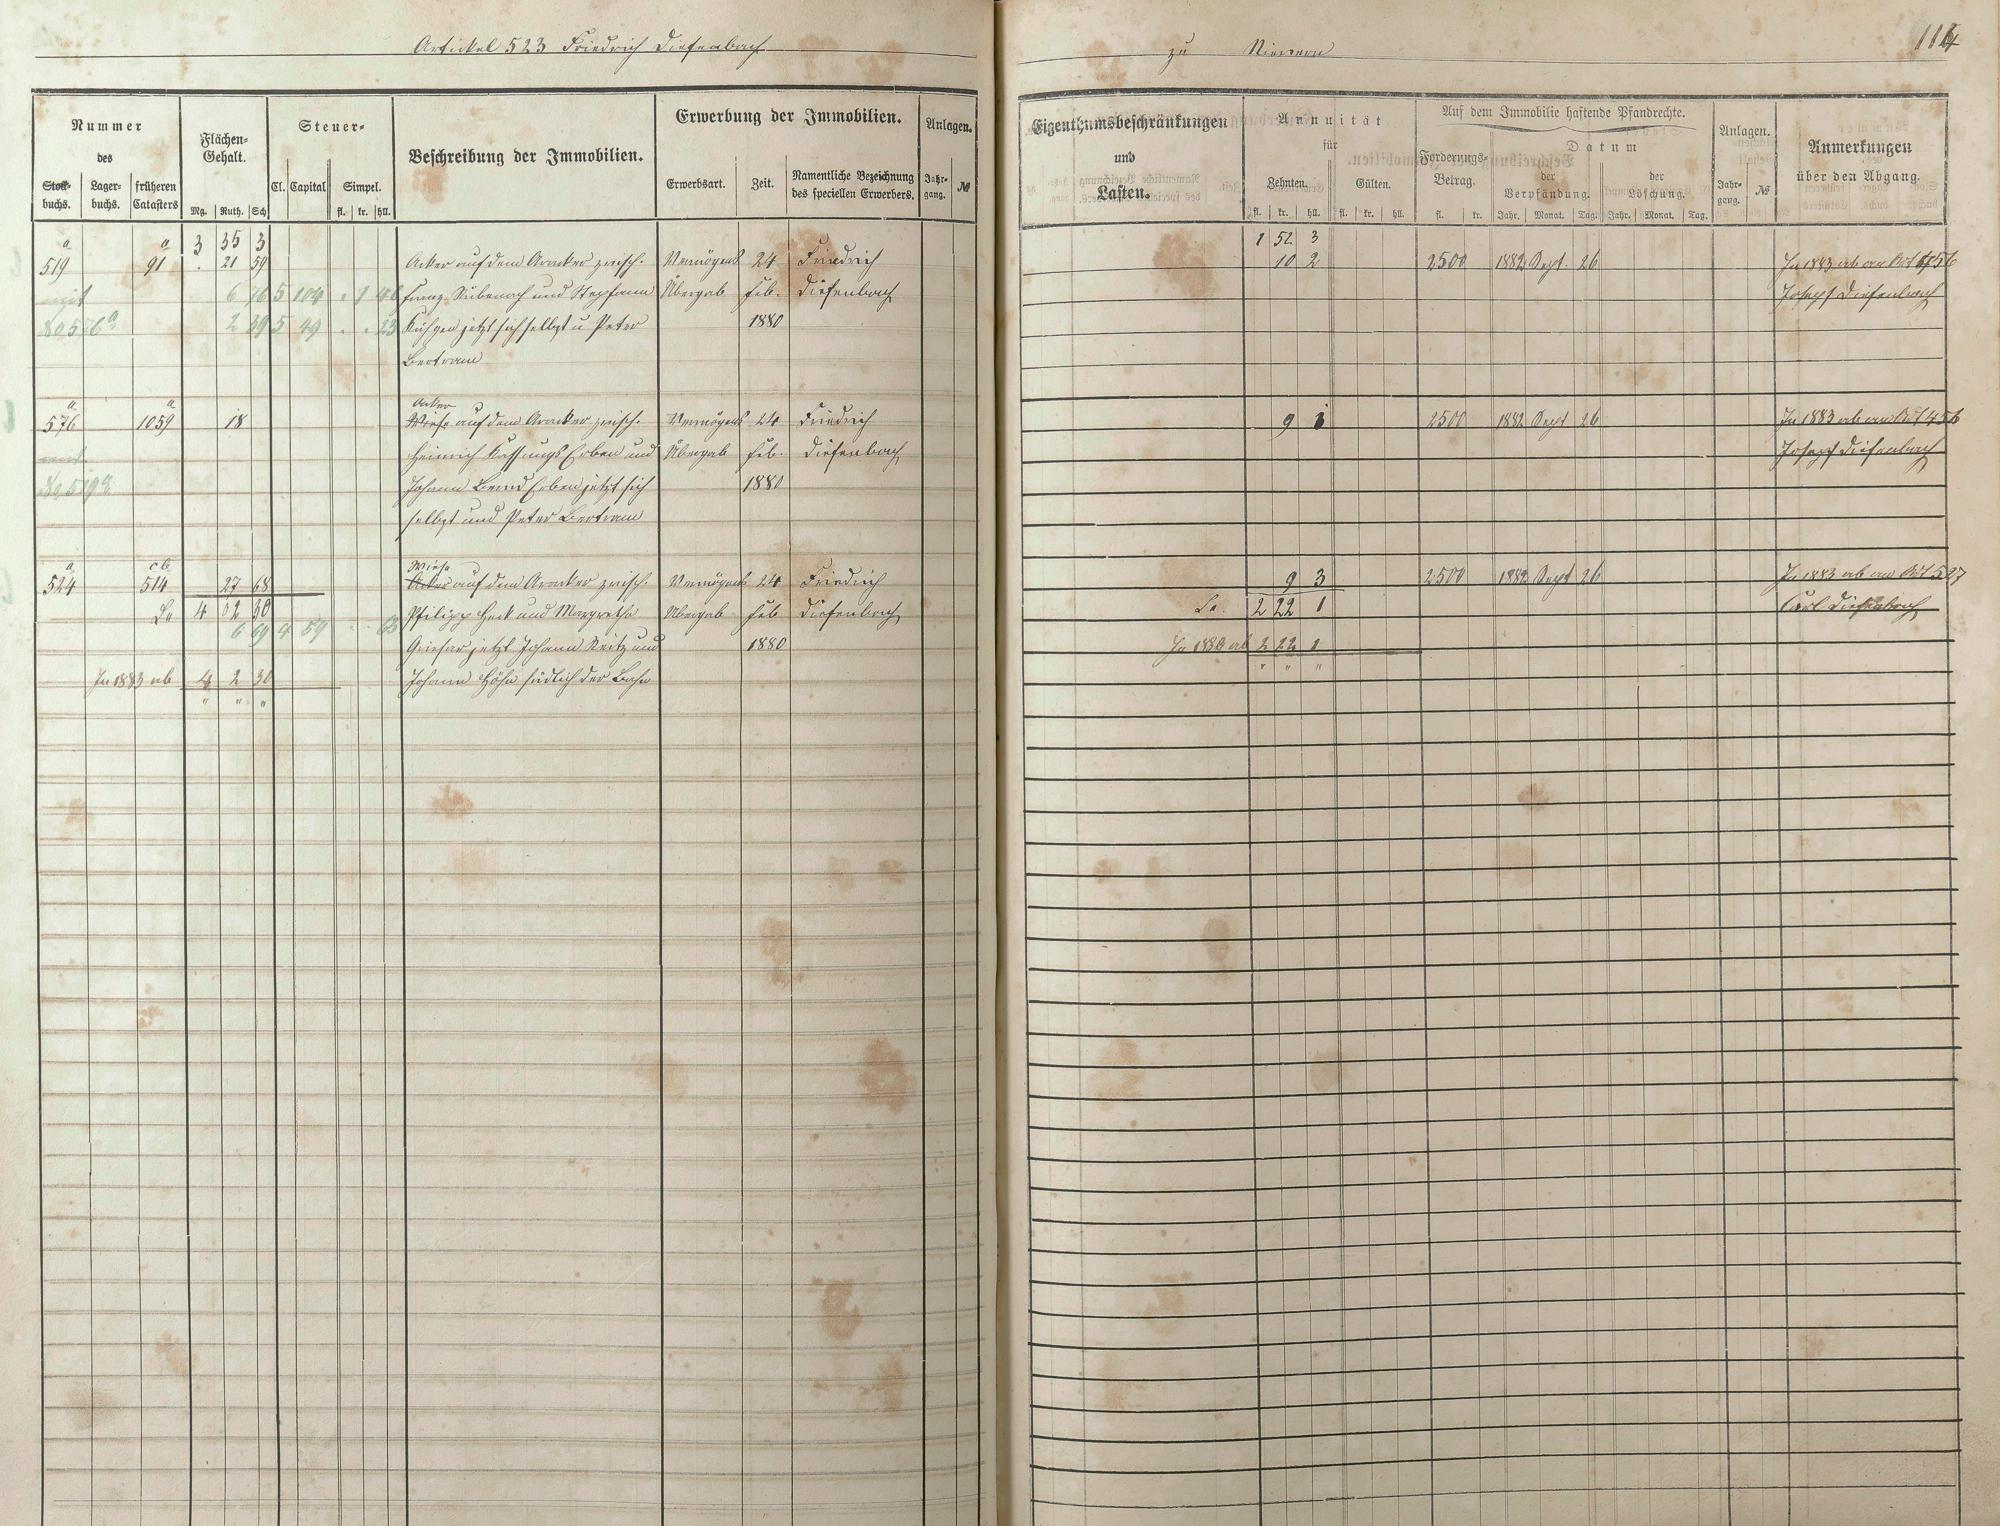 Artickel 523 Friedrich Diefenbach
zu Nievern
114
Nummer
des
Stock-buchs.
Lager-buchs.
früheren Catasters
Flächen-Gehalt.
Mg. Ruth. Sch
Steuer-
Cl. Capital Simpel.
fl. kr. hll.
Beschreibung der Immobilien.
Erwerbung der Immobilien.
Erwerbsart. Zeit.
Namentliche Bezeichnung des speciellen Erwerbers.
Anlagen.
Jahr-gang. №
Eigenthumsbeschränkungen
und
Lasten.
Annuität
für
Zehnten. Gülten.
fl. kr. hll. fl. kr. hll.
Auf dem Immobilie haftende Pfandrechte.
Forderungs-Betrag.
fl. kr.
Datum
der Verpfändung.
Jahr. Monat. Tag.
der Löschung.
Jahr. Monat. Tag.
Anlagen.
Jahr-gang. №
Anmerkungen
über den Abgang.
3 35 3
1 52 3
a a
519 91 . 21 59 Acker auf dem Aracker zwisch. Vermögens 24 Friedrich
10 2 2500 1882 Sept. 26 In 1883 ab an Art 456
mit 6 76 5 104 . 1 46 Franz und Stephann Übergab Feb. Diefenbach
Joseph Diefenbach
No 576 a 2 39 5 49 . . 23 jetzt sich selbst u Peter 1880
Bertram
a a Acker
576 1059 18 Wiese auf dem Aracker zwisch. Vermögens 24 Friedrich
9 1 2500 1882 Sept 26 In 1883 ab an Art 456
mit Heinrich Erben und Übergab Feb. Diefenbach
Joseph Diefenbach
No 519 a Johann Erben jetzt sich 1880
selbst und Peter Bertram
a c b Wiese
524 514 27 68 Acker auf dem Aracker zwisch. Vermögens 24 Friedrich
9 3 2500 1882 Sept 26 In 1883 ab an Art 527
Sa 4 02 30 Philipp Heck und Margretha Übergab Feb Diefenbach
Sa. 2 22 1 Carl Diefenbach
6 69 4 59 . . 63 jetzt Johann Reitz und 1880
In 1883 ab 2 22 1
" " "
In 1883 ab 4 2 30 Johann Höhn südlich der Bahn
" " "